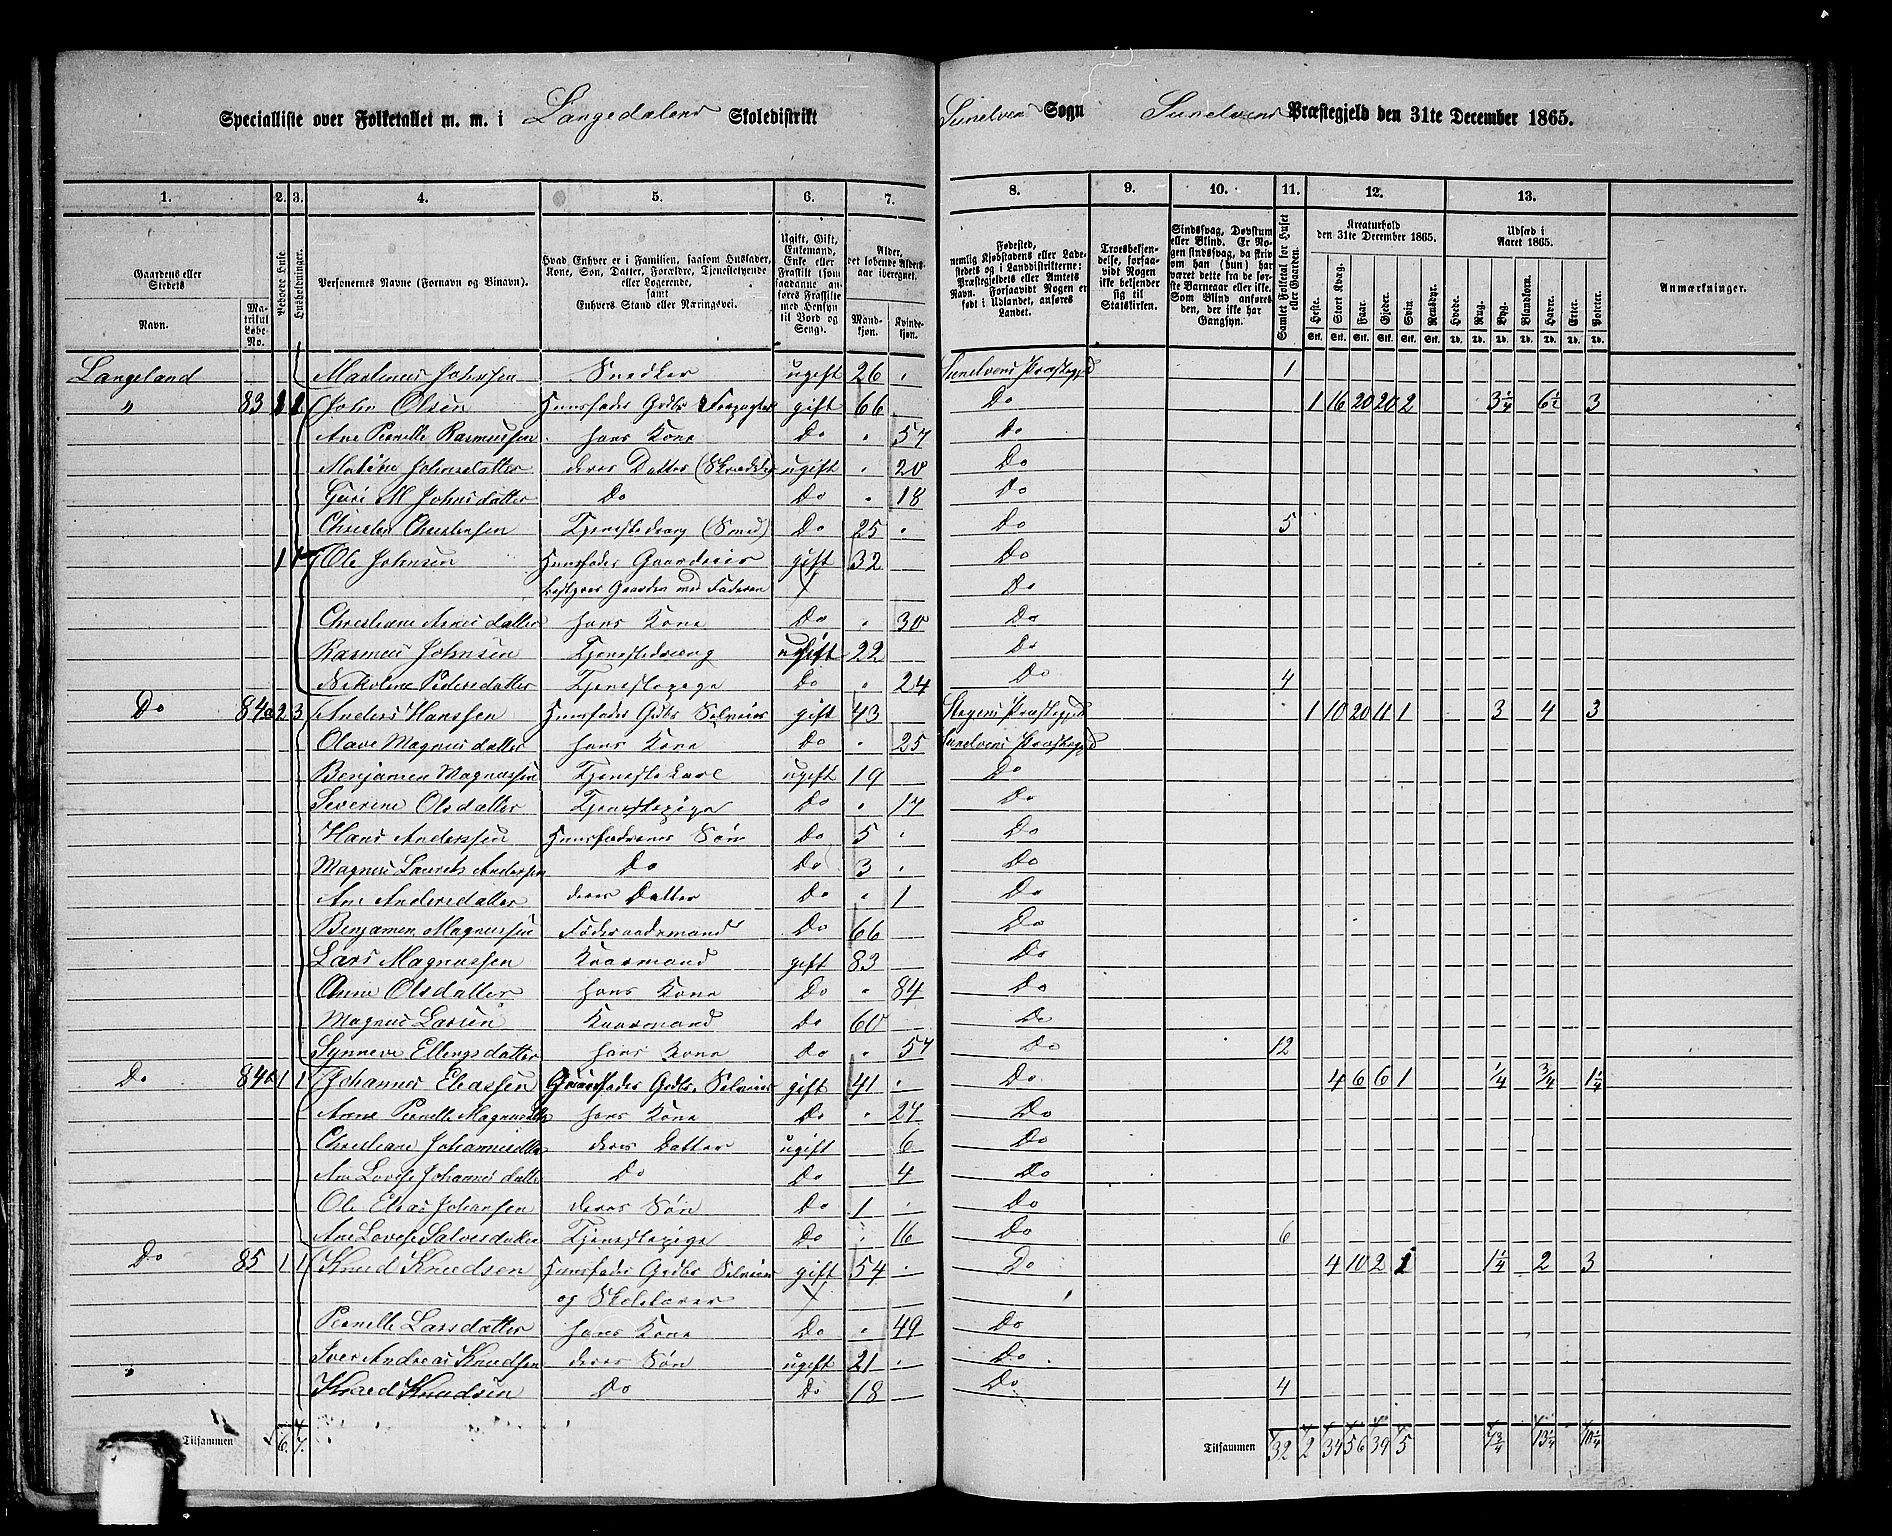 Specialliste over Folketallet m. m. i Langedalens Skoledistrikt Sunelven Sogn Sunelvens Præstegjeld den 31te December 1865.
1. 2. 3. 4. 5. 6. 7. 8. 9. 10. 11. 12. 13.
Gaardens eller Stedets Navn.
Matrikul Løbe-No.
Beboede Huse.
Husholdninger.
Personernes Navne (Fornavn og Binavn).
Hvad Enhver er i Familien, saasom Husfader, Kone, Søn, Datter, Forældre, Tjenestetyende eller Logerende, samt Enhvers Stand eller Næringsvei.
Ugift, Gift, Enkemand, Enke eller Fraskilt (som saadanne anføres Fraskilte med Hensyn til Bord og Seng).
Alder, det løbende Alders-aar iberegnet.
Mandkjøn. Kvindekjøn.
Fødested, nemlig Kjøbstadens eller Ladestedets og i Landdistrikterne: Præstegjeldets eller Amtets Navn. Forsaavidt Nogen er født i Udlandet, anføres Landet.
Troesbekjendelse, forsaavidt Nogen ikke bekjender sig til Statskirken.
Sindssvag, Døvstum eller Blind. Er Nogen sindssvag, da skriv om han (hun) har været dette fra de første Barneaar eller ikke. Som Blind anføres den, der ikke har Gangsyn.
Samlet Folketal for Huset eller Gaarden.
Kreaturhold den 31te December 1865.
Heste. Stort Kvæg. Faar. Gjeder. Svin. Rensdyr.
Stk. Stk. Stk. Stk. Stk. Stk.
Udsæd i Aaret 1865.
Hvede. Rug. Byg. Blandkorn. Havre. Erter. Poteter.
Td. Td. Td. Td. Td. Td. Td.
Anmærkninger.
Langeland Martinus Johnsen Snedker ugift 26 Sunelvens Præstegjd 1
" 83 1 2 John Olsen Huusfader Grdbr gift 66 Do 1 16 20 20 2 3 1/4 6 1/2 3
Ane Pernille Rasmussen hans Kone Do " 57 Do
Maline Johnsdatter deres Datter ugift " 20 Do
Guri M Johnsdatter Do Do " 18 Do
Christen Christensen Tjenestedreng (Smed) Do 25 Do 5
1 1 Ole Johnsen Huusfader Gaardeier gift 32 Do
bestyrer Gaarden med Faderen Do
Christiane Arnesdatter hans Kone Do " 30 Do
Rasmus Johnsen Tjenestedreng ugift 22 Do
Nikoline Pedersdatter Tjenestepige Do " 24 Do 4
Do 84a 2 3 Anders Hanssen Huusfader Grdbr Selveier gift 43 Præstegjd 1 10 20 11 1 3 4 3
Olave Magnusdatter hans Kone Do " 25 Sunelvens Præstegjd
Benjamin Magnussen Tjenestekarl ugift 19 Do
Severine Olsdatter Tjenestepige Do " 17 Do
Hans Anderssen Huusfaderens Søn Do 5 Do
Magnus Laurits Andersen Do Do 3 Do
Ane Andersdatter deres Datter Do " 1 Do
Benjamin Magnussen Føderaadsmand Do 66 Do
Lars Magnussen Kaarmand gift 83 Do
Anne Olsdatter hans Kone Do " 84 Do
Magnus Larsen Kaarmand Do 60 Do
Synneve Ellingsdatter hans Kone Do " 57 Do 12
Do 84b 1 1 Johannes Eliassen Huusfader Grdbr. Selveier gift 41 Do 4 6 6 1 1/4 3/4 1 1/4
Anne Pernille Magnusdtr hans Kone Do " 27 Do
Christiane Johannesdtter deres Datter ugift 6 Do
Ane Lovise Johannesdatter Do Do 4 Do
Ole Elias Johansen deres Søn Do 1 Do
Ane Lovise Tjenestepige Do " 16 Do 6
Do 85 1 1 Knud Knudsen Huusfader Grdbr Selveier gift 54 Do 4 10 2 1 1 1/4 2 3
og Skolelærer
Pernille Larsdatter hans Kone Do " 49 Do
Iver Andreas Knudsen deres Søn ugift 21 Do
Knud Knudsen Do Do 18 Do 4
Tilsammen 6 7 Tilsammen 32 2 34 56 39 5 7 3/4 13 1/4 10 1/4